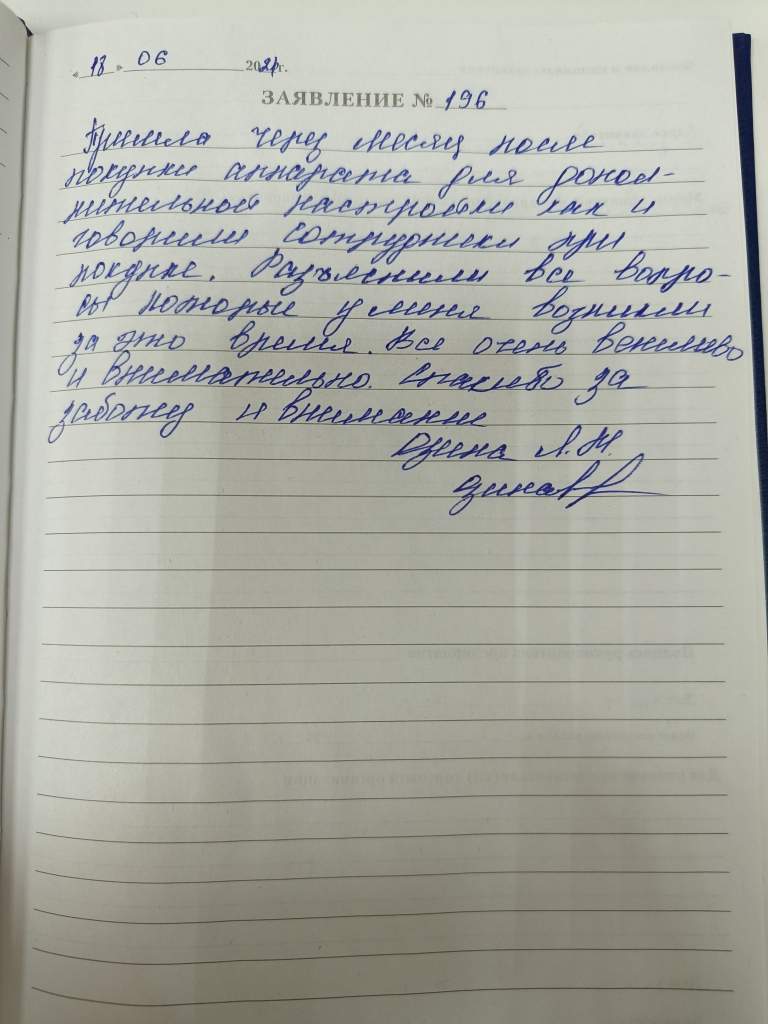 « 18 » 06 2021 г.
ЗАЯВЛЕНИЕ № 196
Пришла через месяц после
покупки аппарата для допол-
нительной настройки как и
говорили сотрудники при
покупке. Разъяснили все вопро-
сы которые у меня возникли
за это время. Все очень вежливо
и внимательно. Спасибо за
заботу и внимание
Л.М.